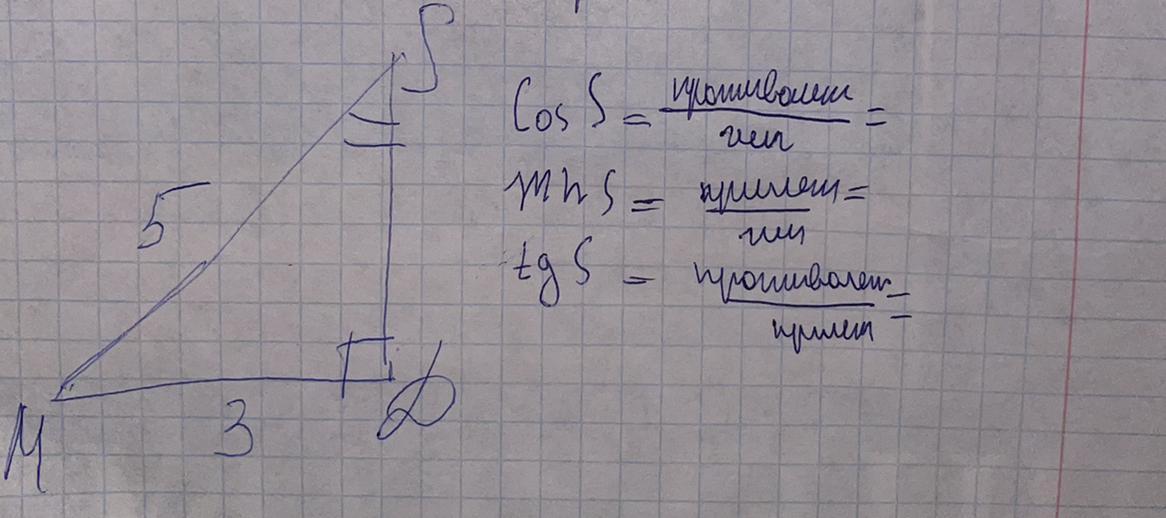 S
Cos S = противолеж / гип =
sin S = прилеж / гип =
5
tg S = противолеж / прилеж =
M 3 D